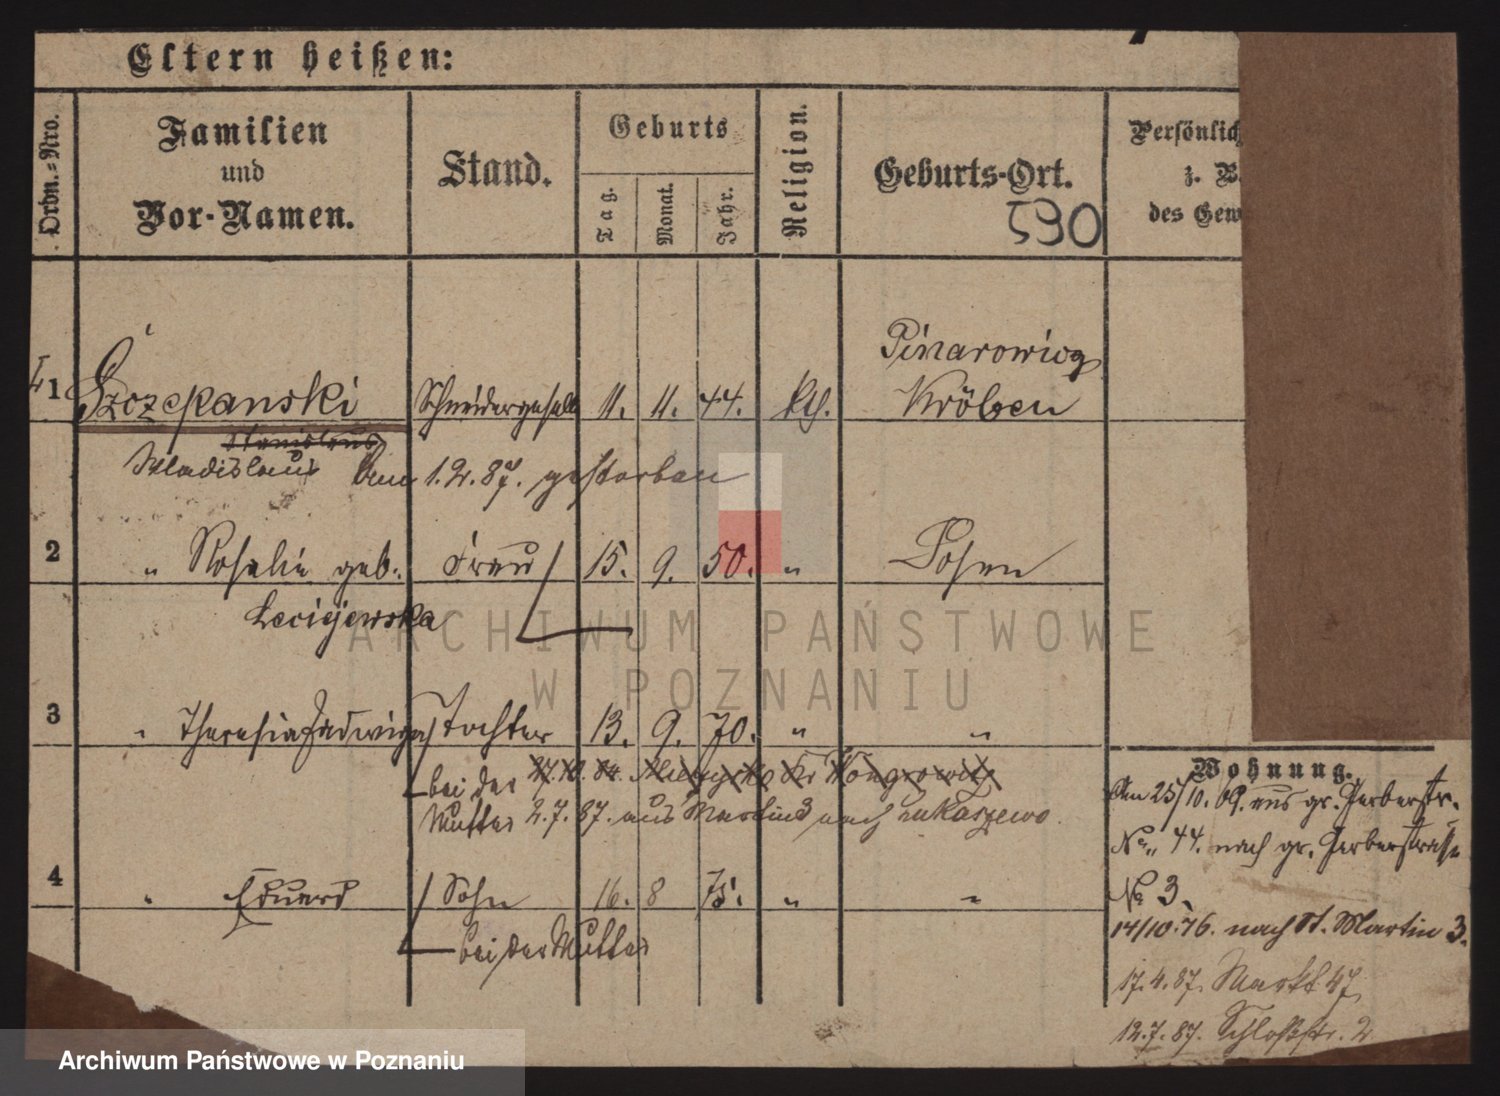 Eltern heißen:
Ordn.-Nro.
Familien
und
Vor-Namen.
Stand.
Geburts
Tag.
Monat.
Jahr.
Religion.
Geburts-Ort.
590
Persönlich
z. B.
des Gew
1 Szczepanski Schneidergeselle 11. 11. 44. kth. Kröben
Stanislaus
Wladislaus Am 1.2.87. gestorben
2 " Rosalie geb. Frau 15. 9. 50. " Posen
Leciejewska
3 " Theresia Hedwiga Tochter 13. 9. 70. " "
bei der 27.10.84.
Mutter 2.7.87. aus Martins nach Lukaszewo.
4 " Eduard Sohn 16. 8 75. " "
bei der Mutter
Wohnung.
Am 25/10.69. aus gr. Gerberstr.
No. 44. nach gr. Gerberstrasse
No 3.
14/10.76. nach St. Martin 3.
17.4.87. Markt 47
12.7.87. Schloßstr. 2
ARCHIWUM PAŃSTWOWE
W POZNANIU
Archiwum Państwowe w Poznaniu